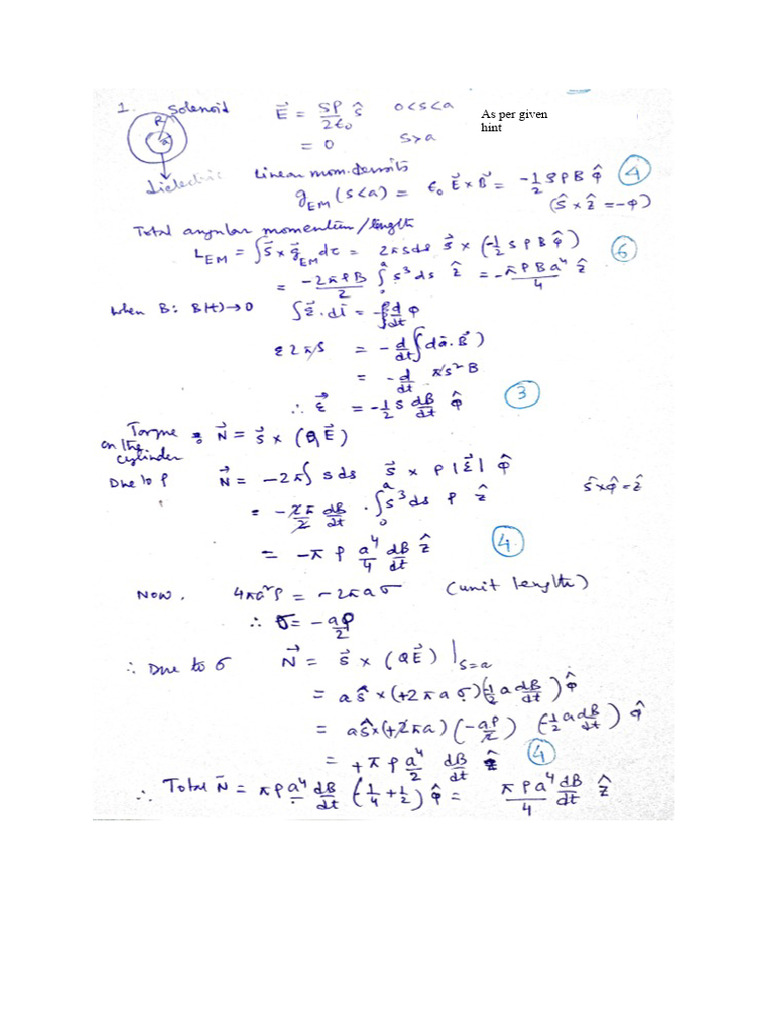 1. Solenoid E⃗ = sρ/2ε₀ ŝ 0<s<a
As per given
hint
R
a
= 0 s>a
dielectric
Linear mom. density
g_EM (s<a) = ε₀ E⃗ × B⃗ = -1/2 s ρ B φ̂ (4)
(ŝ × ẑ = -φ)
Total angular momentum/length
L_EM = ∫ s⃗ × g⃗_EM dτ = 2π s ds s⃗ × (-1/2 s ρ B φ̂) (6)
= -2πρB/2 ∫₀ᵃ s³ ds ẑ = -πρBa⁴/4 ẑ
when B: B(t)→0 ∫ε⃗.dl⃗ = -d/dt φ
ε 2πs = -d/dt ∫(da⃗.B⃗)
= -d/dt πs²B
∴ ε⃗ = -1/2 s dB/dt φ̂ (3)
Torque N⃗ = s⃗ × (QE⃗)
on the
cylinder
Due to ρ N⃗ = -2π∫ s ds s⃗ × ρ|ε⃗| φ̂ ŝ×φ̂ = ẑ
= -2π/2 dB/dt . ∫₀ᵃ s³ ds ρ ẑ
= -π ρ a⁴/4 dB/dt ẑ (4)
Now, πa²ρ = -2πaσ (unit length)
∴ σ = -aρ/2
∴ Due to σ N⃗ = s⃗ × (QE⃗)|s=a
= aŝ × (+2πaσ)(-1/2 a dB/dt) φ̂
= aŝ × (+2πa)(-aρ/2)(-1/2 a dB/dt) φ̂
= +πρ a⁴/2 dB/dt ẑ (4)
∴ Total N⃗ = πρa⁴ dB/dt (-1/4 + 1/2) φ̂ = πρa⁴/4 dB/dt ẑ